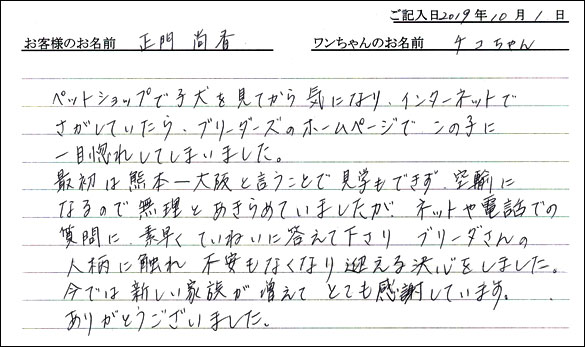 ご記入日2019年10月1日
お客様のお名前 正門 尚香 ワンちゃんのお名前 チコちゃん
ペットショップで子犬を見てから気になり、インターネットで
さがしていたら、ブリーダーズのホームページで、この子に
一目惚れしてしまいました。
最初は熊本ー大阪と言うことで見学もできず、空輸に
なるので無理とあきらめていましたが、ネットや電話での
質問に、素早くていねいに答えて下さり ブリーダさんの
人柄に触れ 不安もなくなり迎える決心をしました。
今では新しい家族が増えて とても感謝しています。
ありがとうございました。